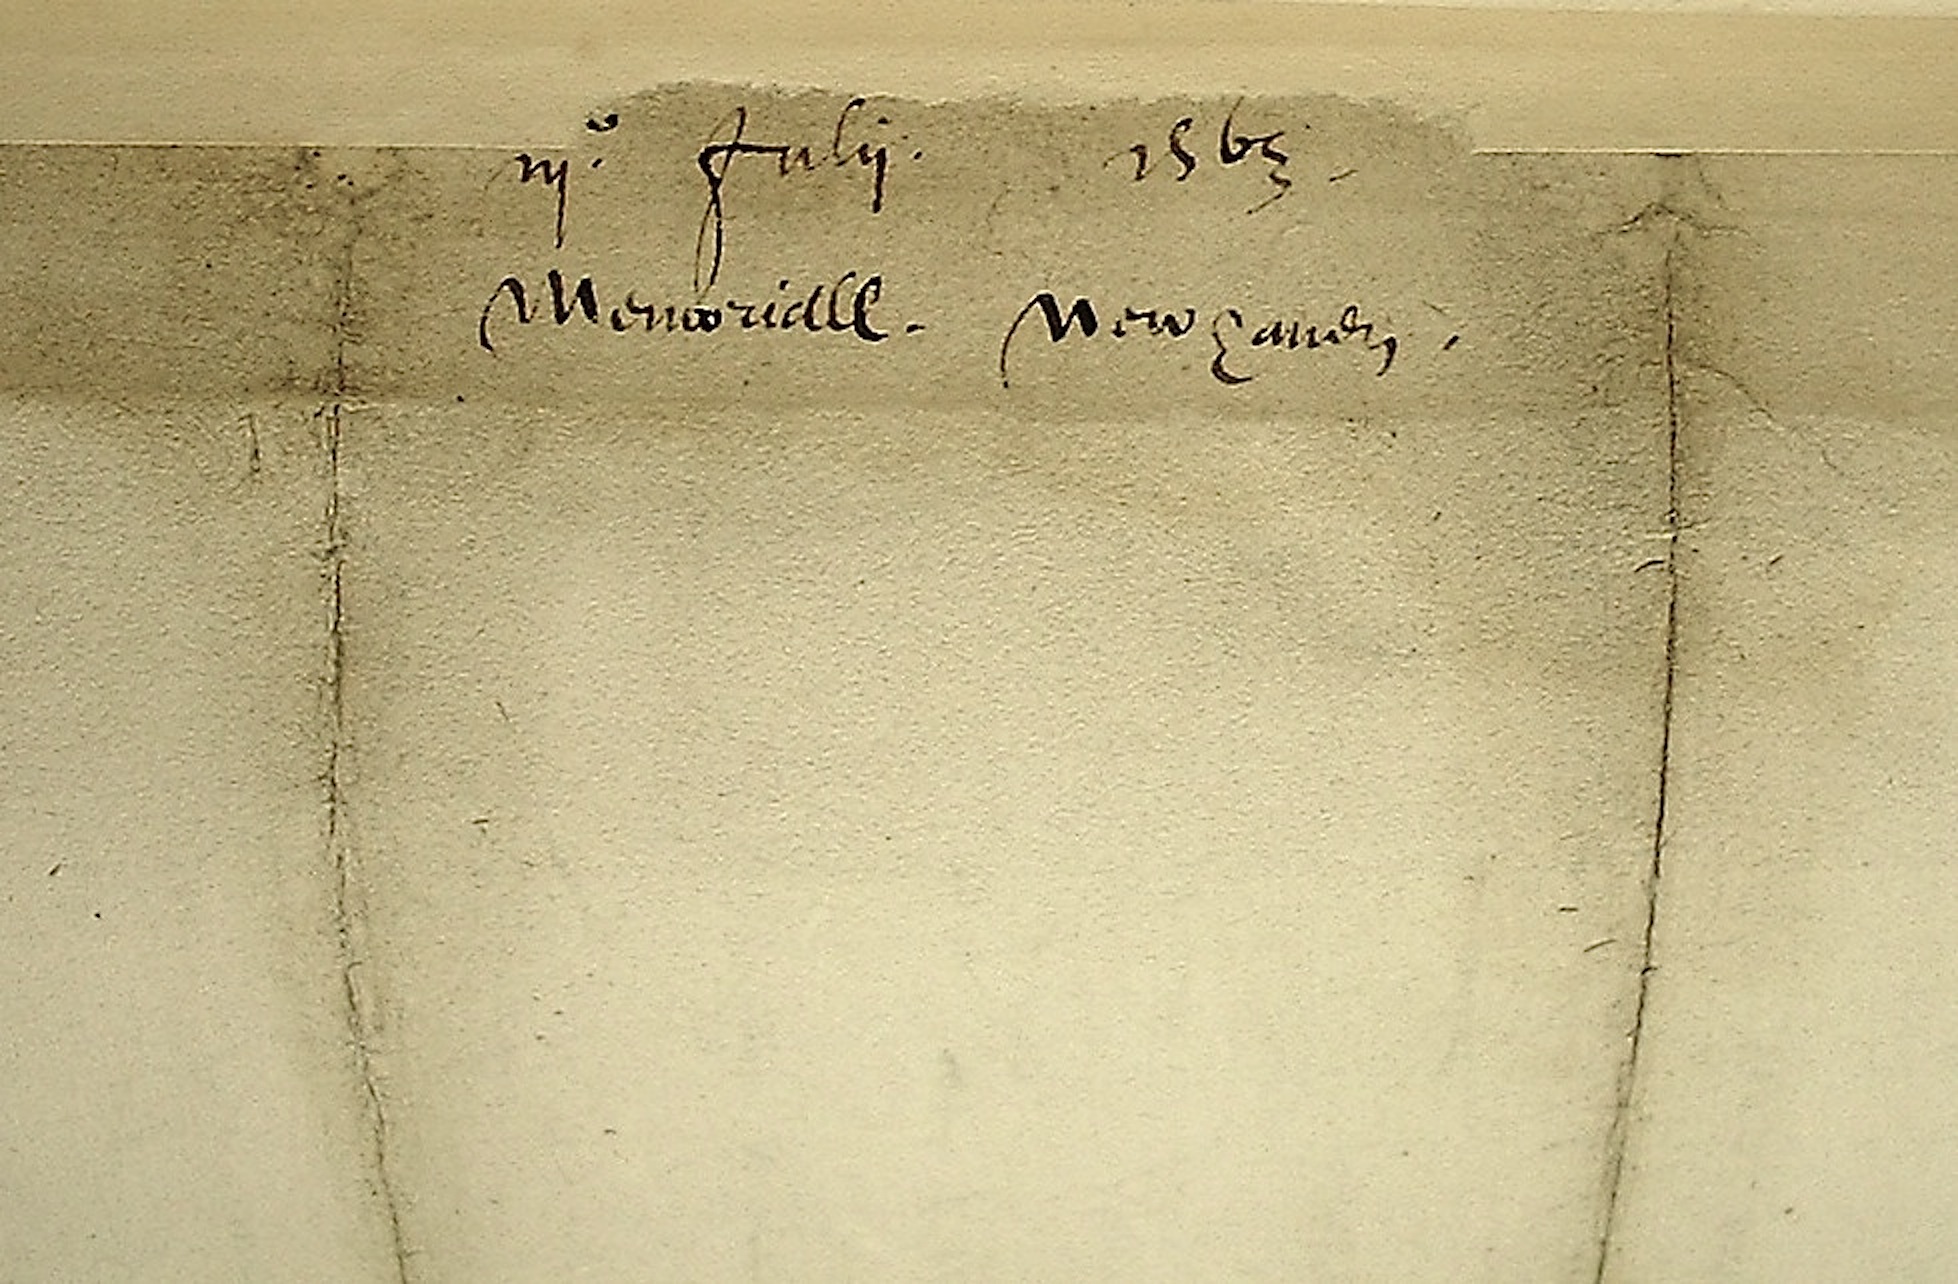 iijº. Julij. 1563.
Memoriall. Newhauen.